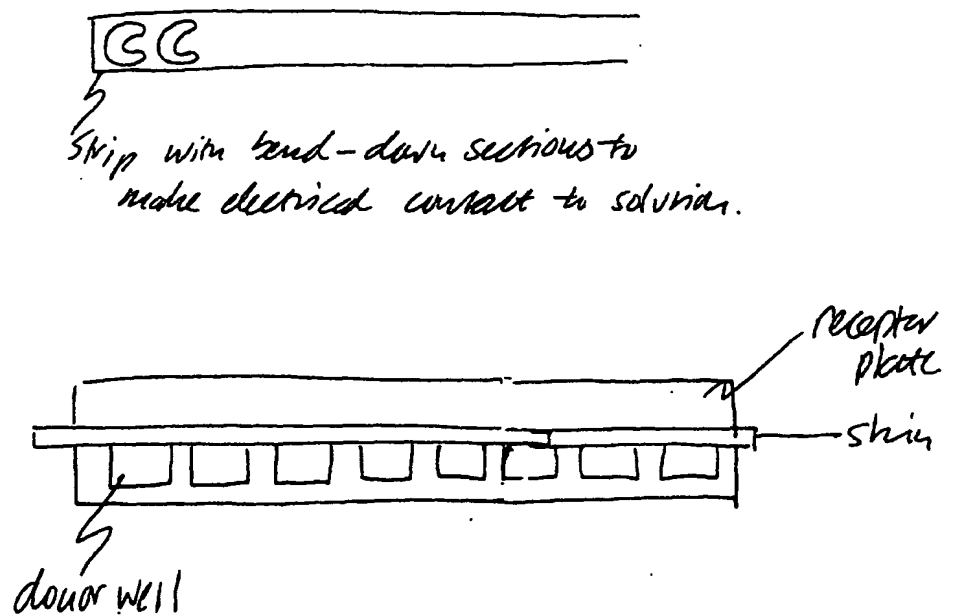 Strip with bend-down sections to
make electrical contact to solution.
receptor
plate
skin
donor well